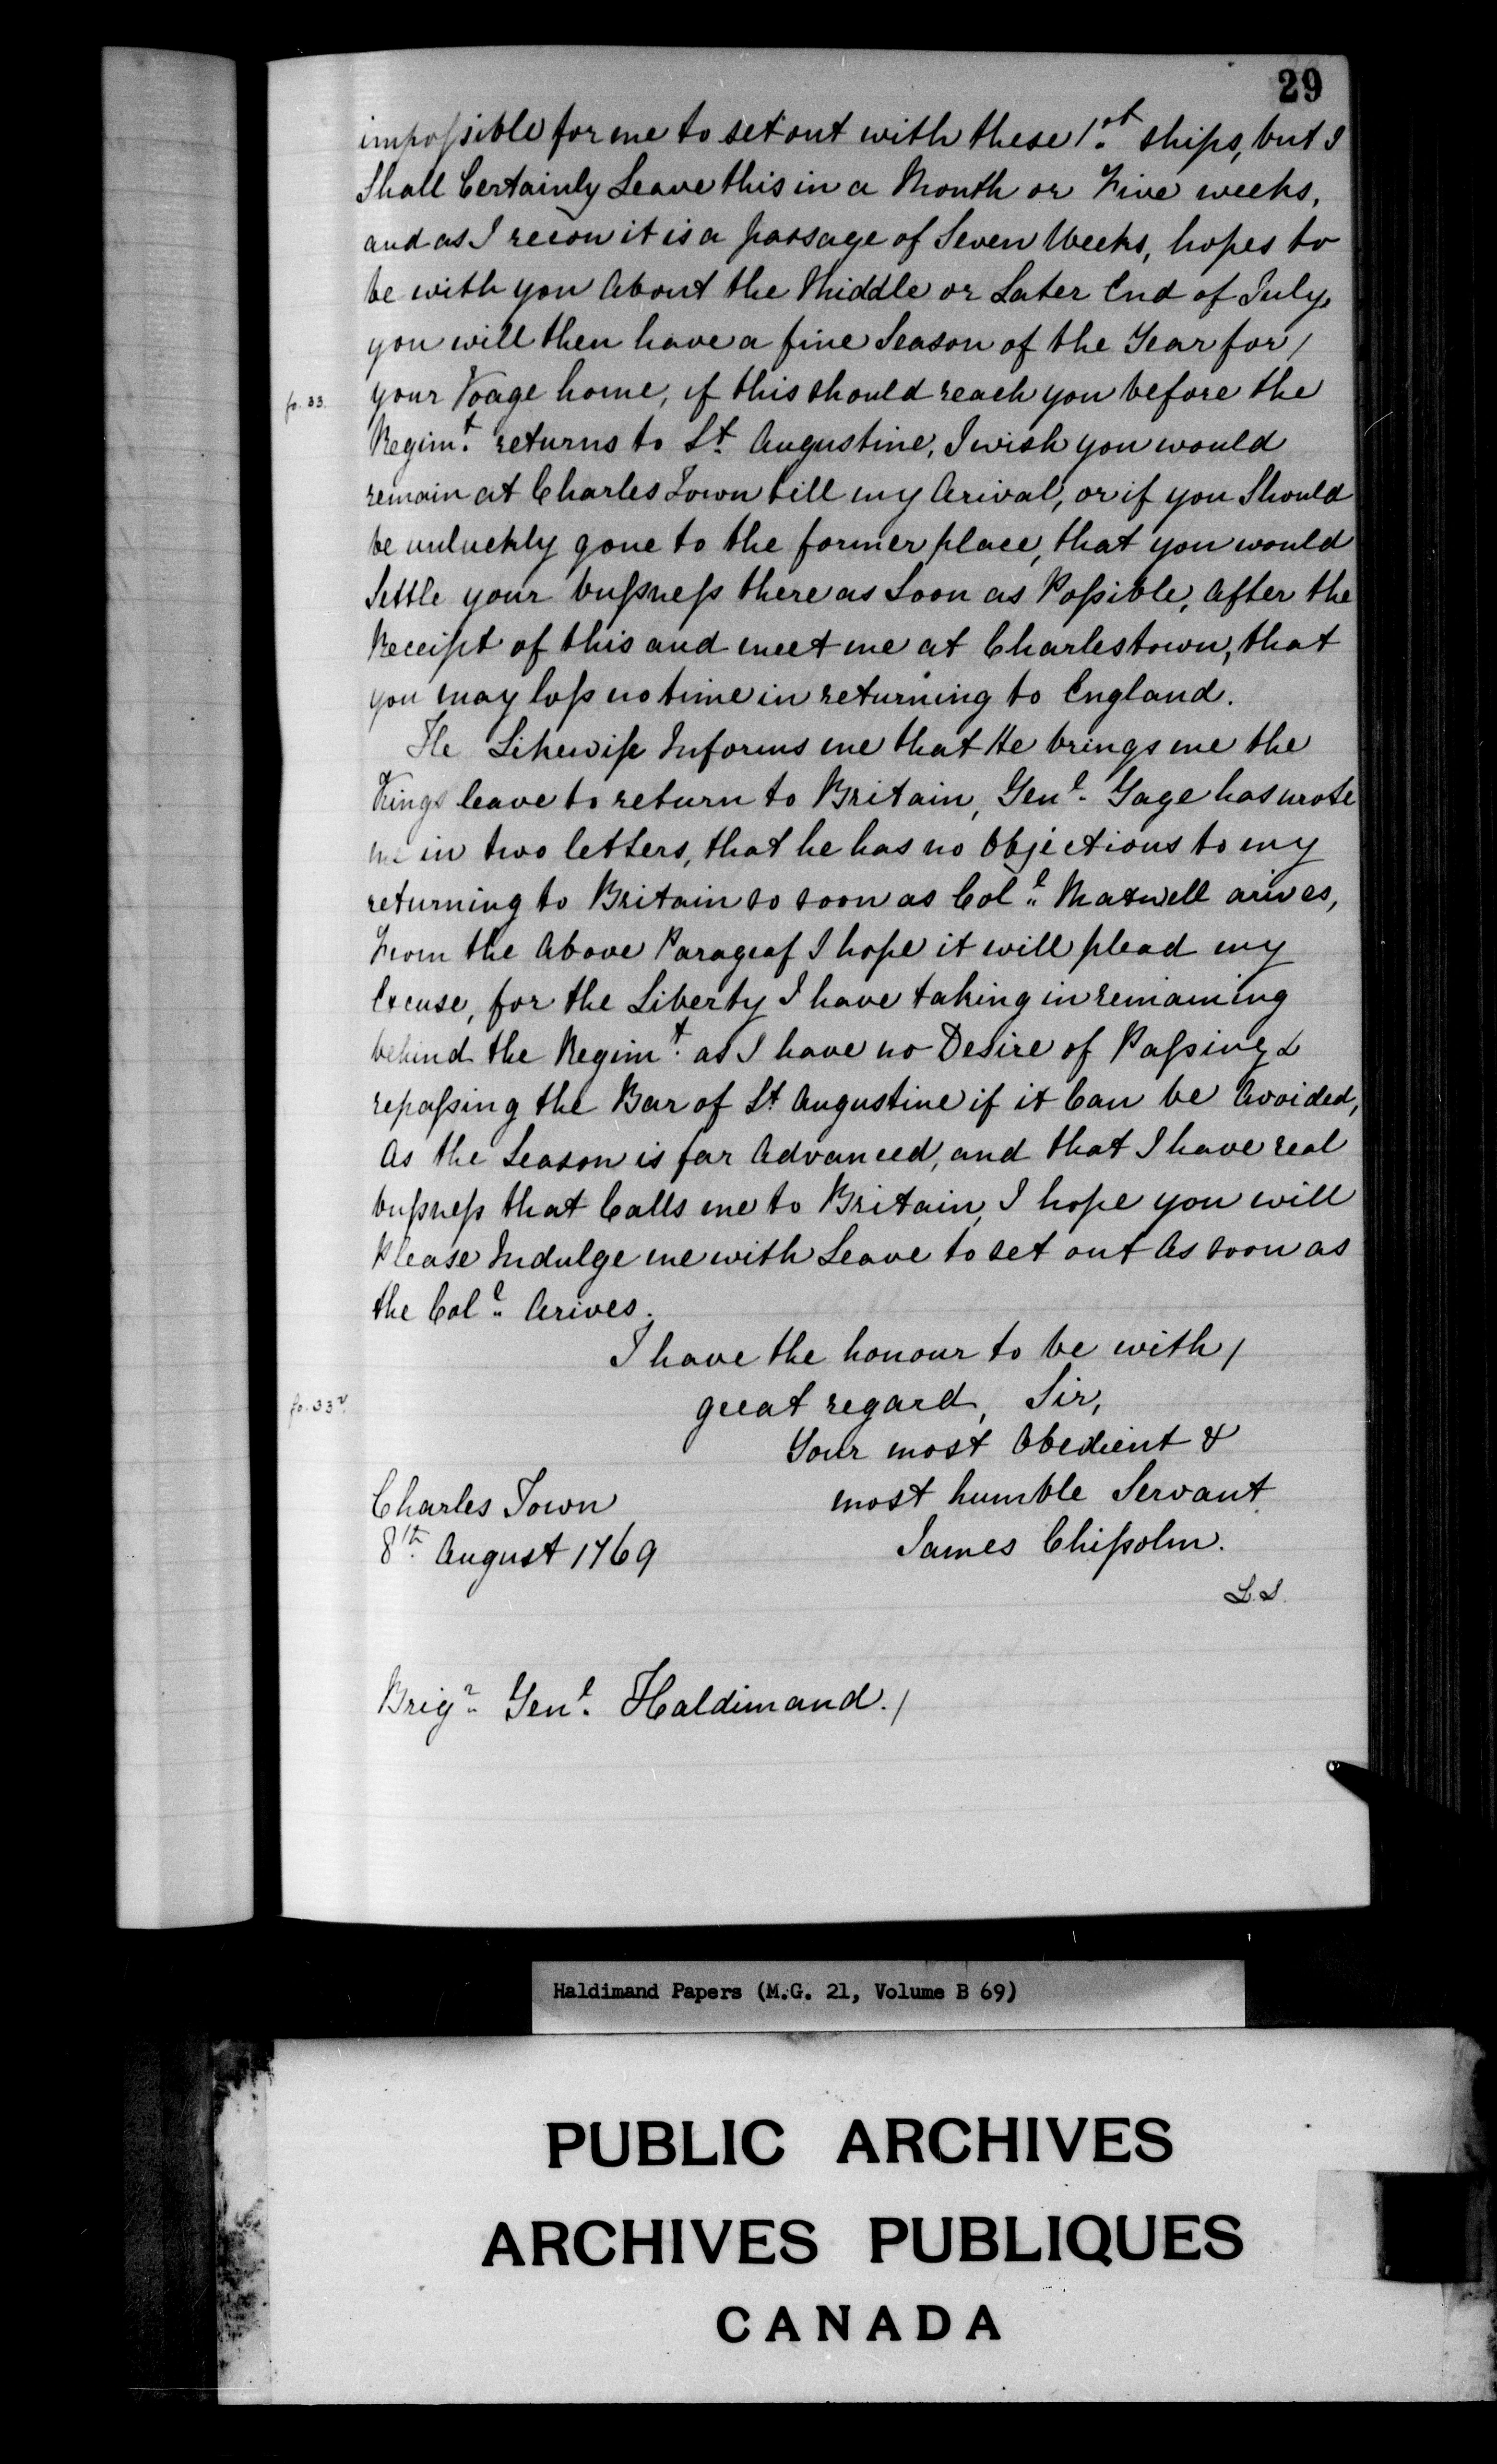 29
impoſsible for me to set out with these 1st ships, but I
Shall Certainly Leave this in a Month or Five weeks,
and as I recon it is a passage of Seven Weeks, hopes to
be with you About the Middle or Later End of July,
you will then have a fine Season of the Year for /
fo. 33. your Voage home, if this should reach you before the
Regimt. returns to St. Augustine, I wish you would
remain at Charles Town till my Arival, or if you Should
be unluckly gone to the former place, that you would
Settle your buſsneſs there as Soon as Poſsible, After the
Receipt of this and meet me at Charlestown, that
you may loſs no time in returning to England.
He Likewiſe Informs me that He brings me the
Kings leave to return to Britain, Genl. Gage has wrote
me in two letters, that he has no Objections to my
returning to Britain so soon as Coll. Maxwell arives,
From the Above Paragraf I hope it will plead my
Excuse, for the Liberty I have taking in remaining
behind the Regimt. as I have no Desire of Paſsing &
repaſsing the Bar of St Augustine if it Can be Avoided,
As the Season is far Advanced, and that I have real
buſsneſs that Calls me to Britain, I hope you will
Please Indulge me with Leave to set out As soon as
the Coll. Arives.
I have the honour to be with /
fo. 33v. great regard, Sir,
Your most Obedient &
most humble Servant
Charles Town
James Chiſsolm.
8th. August 1769
L.S.
Brigr. Genl. Haldimand. /
Haldimand Papers (M.G. 21, Volume B 69)
PUBLIC ARCHIVES
ARCHIVES PUBLIQUES
CANADA